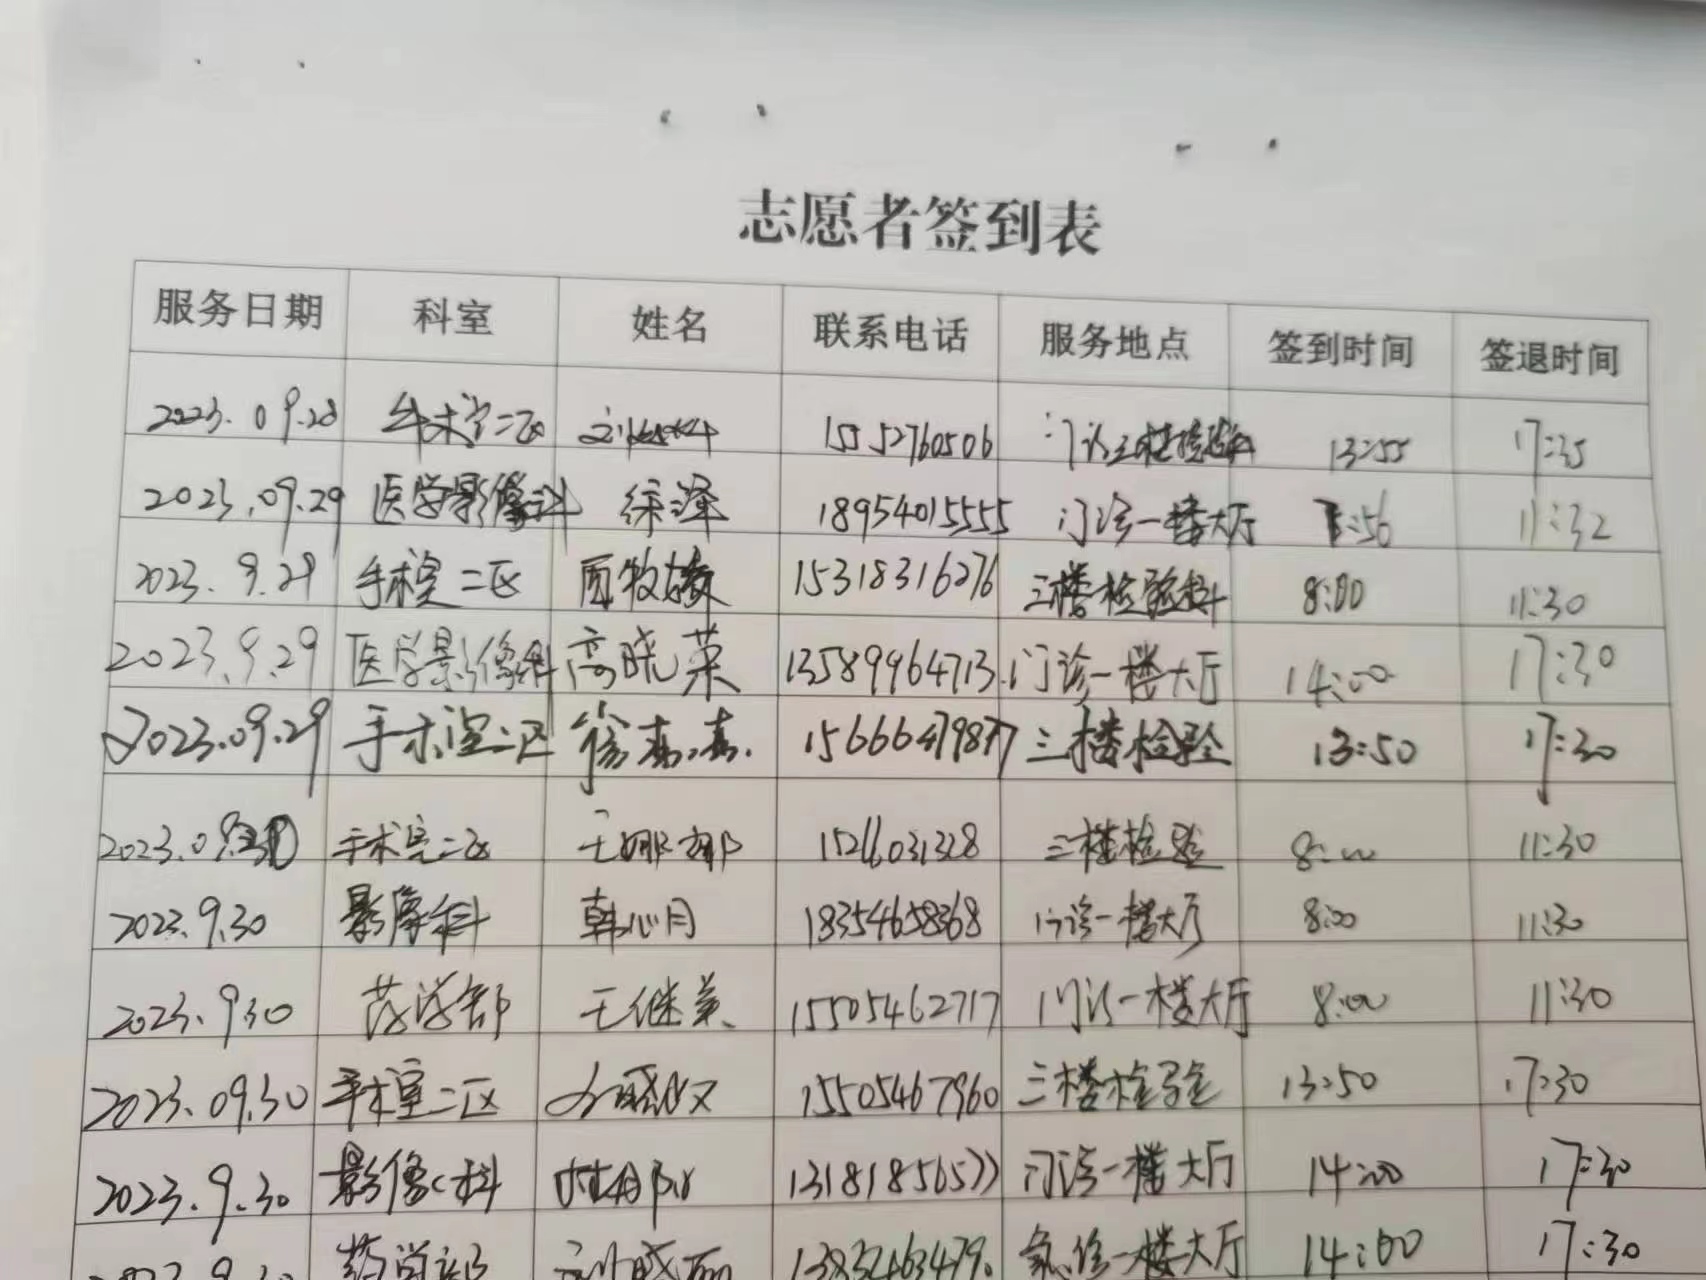 志愿者签到表
服务日期 科室 姓名 联系电话 服务地点 签到时间 签退时间
2023.09.28 手术室二区 15552760506 门诊三楼检验科 13:55 17:35
2023.09.29 医学影像科 徐泽 18954015555 门诊一楼大厅 :56 11:32
2023.9.29 手术室二区 15318316276 三楼检验科 8:00 11:30
2023.9.29 医学影像科 高晓荣 13589964713 门诊一楼大厅 14:00 17:30
2023.09.29 手术室二区 徐嘉嘉 三楼检验 13:50 17:30
手术室二区 王娜娜 三楼检验 8:00 11:30
2023.9.30 影像科 韩心月 18354658368 门诊一楼大厅 8:00 11:30
2023.9.30 药学部 王继美 15505462717 门诊一楼大厅 8:00 11:30
2023.09.30 手术室二区 15505467960 三楼检验 13:50 17:30
2023.9.30 影像科 13181856577 门诊一楼大厅 14:00 17:30
药学部 刘晓丽 急诊一楼大厅 14:00 17:30